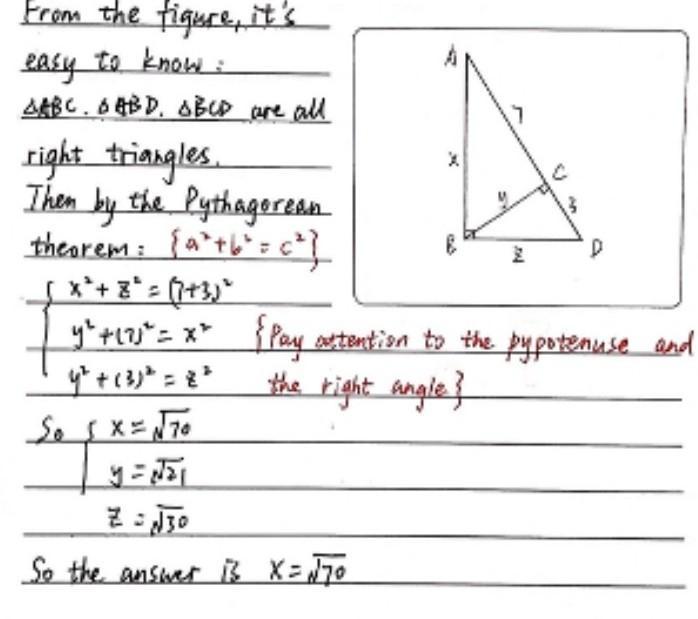 From the figure, it's
easy to know:
△ABC. △ABD. △BCD are all
right triangles.
Then by the Pythagorean
theorem: {a²+b²=c²}
{ x²+z²=(7+3)²
y²+(7)²=x² {Pay attention to the pypotenuse and
y²+(3)²=z² the right angle}
So { x=√70
y=√21
z=√30
So the answer is x=√70
A
7
x
C
y
3
B
z
D